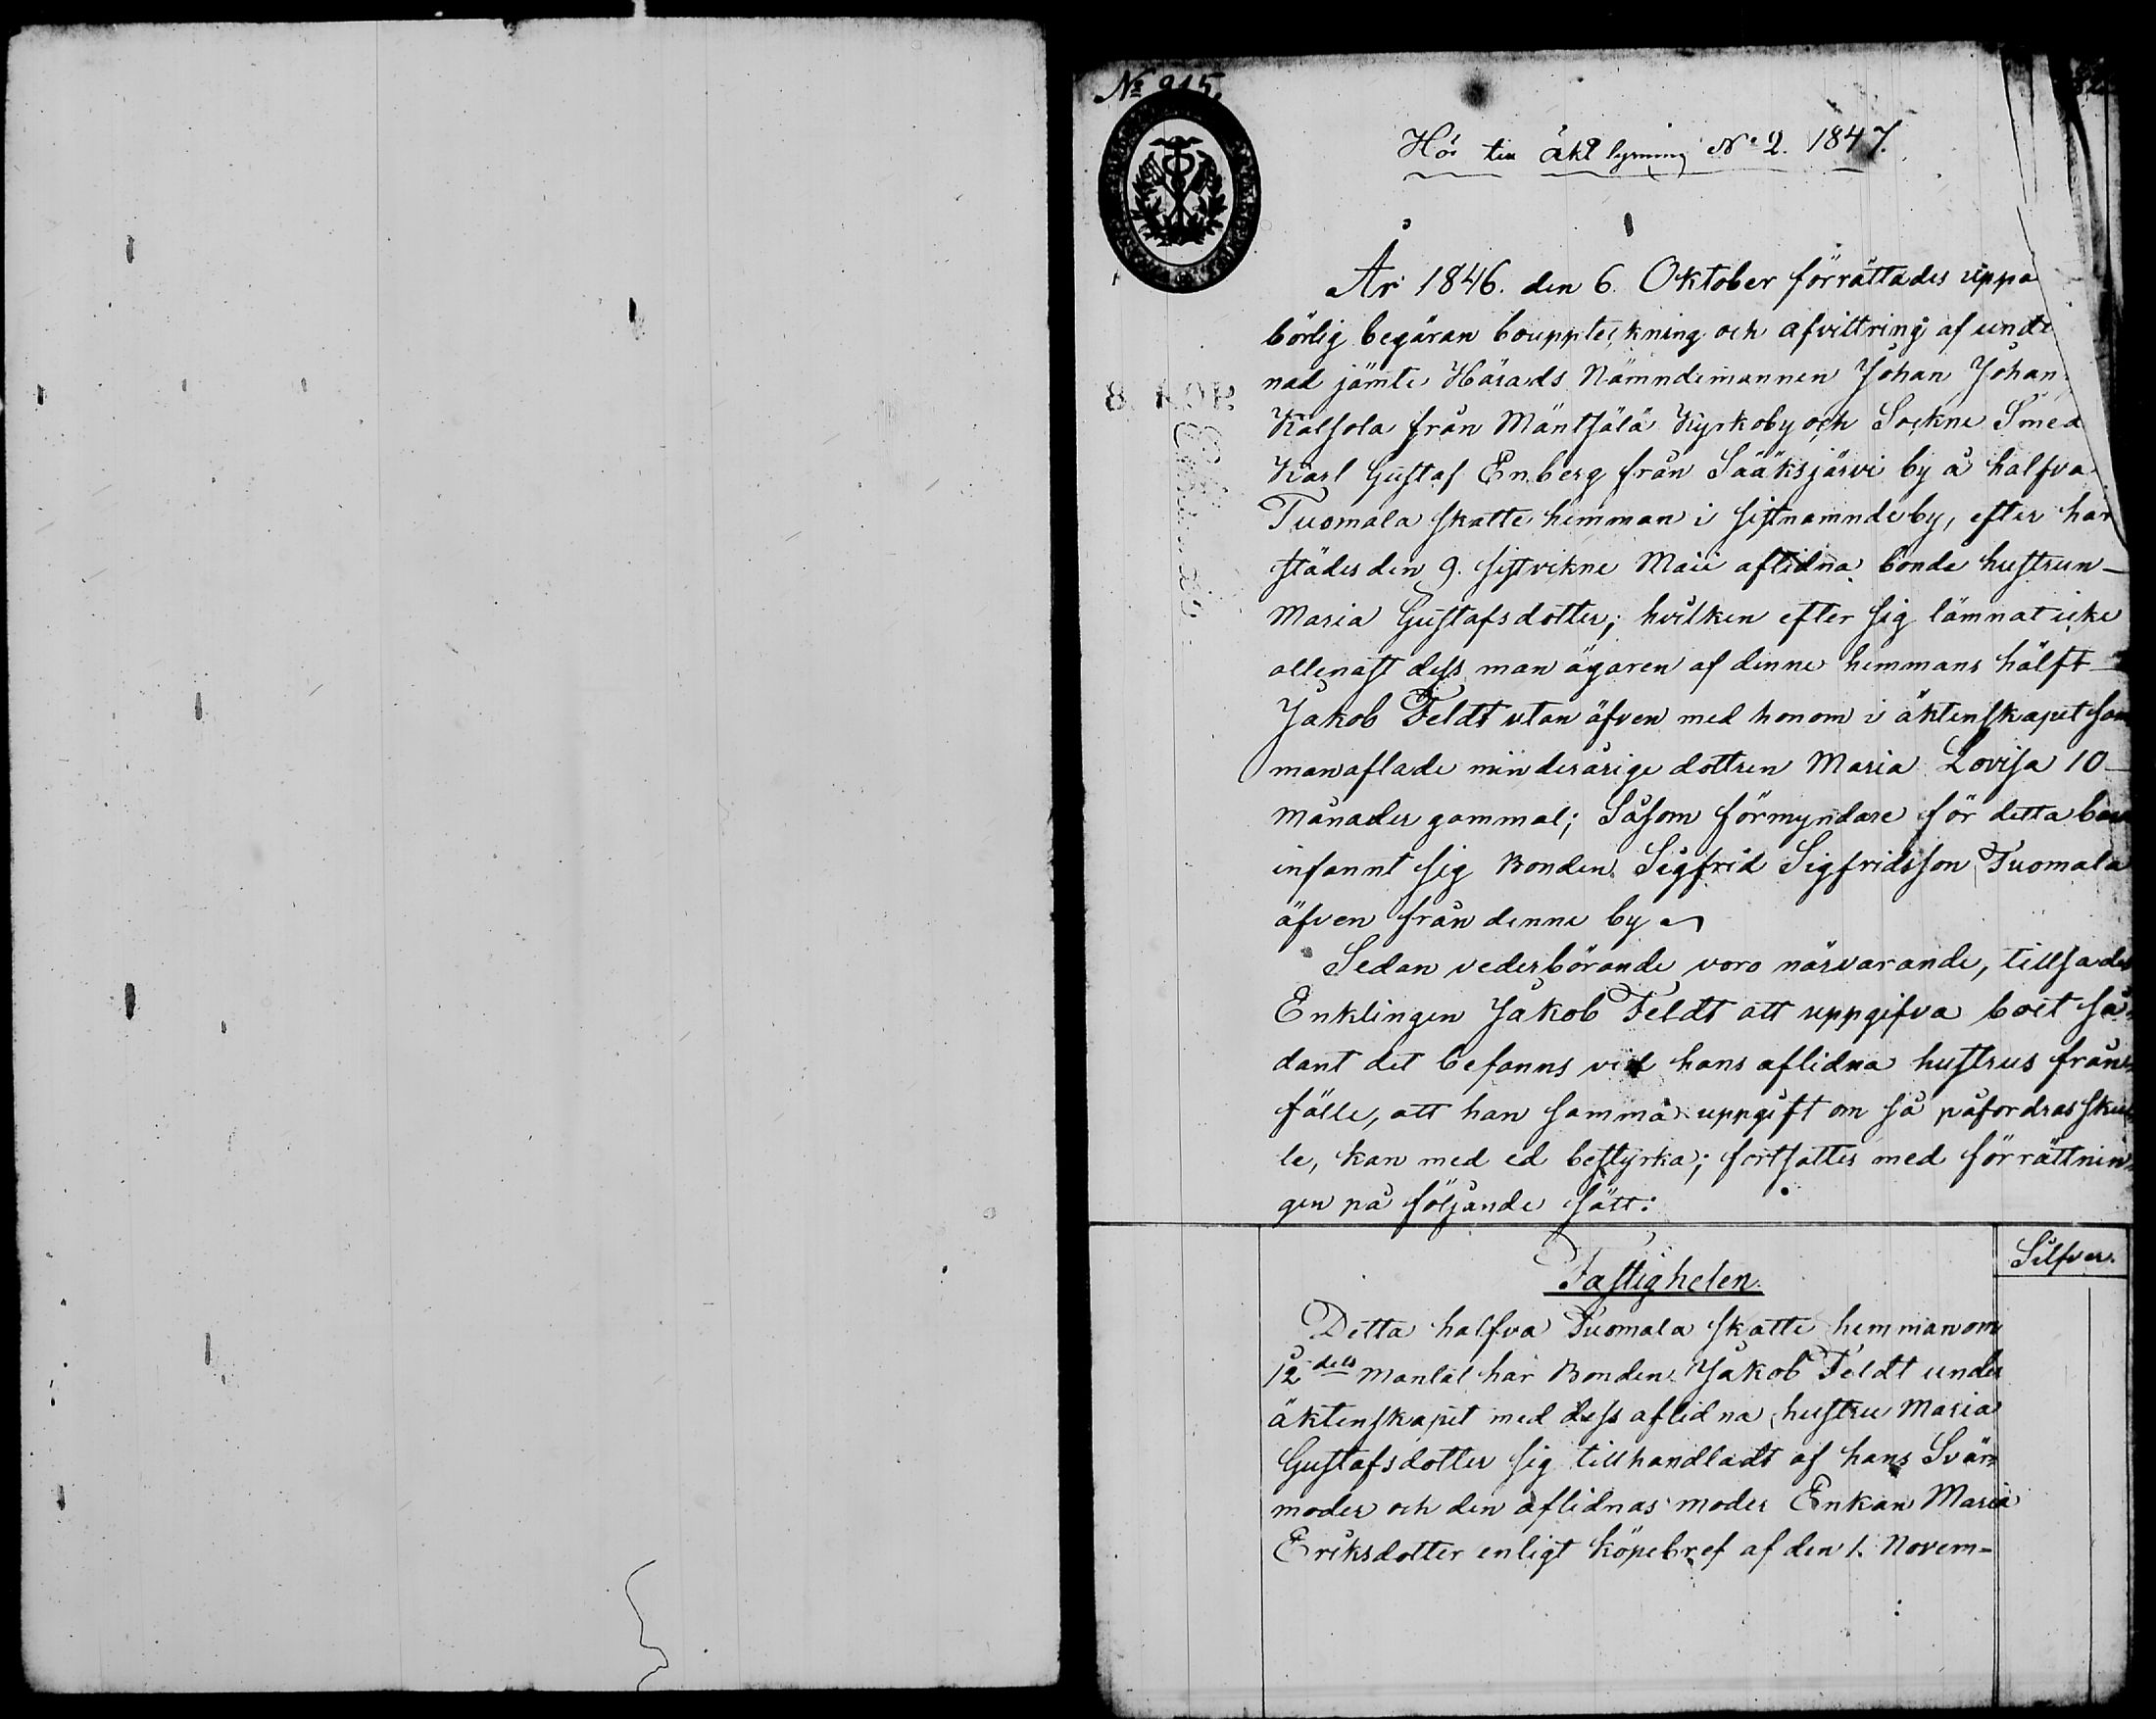 No 915.
Hör till äkt lysning No 2. 1847.
År 1846. den 6. Oktober förrättades uppå
börlig begäran bouppteckning och afvittring af unde
nad jämte Härads Nämndemannen Johan Johans
Kalsola från Mäntsälä Kyrkoby och Sockne Smed
Karl Gustaf Enberg från Sääksjärvi by å halfva
Tuomala skatte hemman i sistnämnde by, efter här
städes den 9. sistvikne Maii aflidna bonde hustrun
Maria Gustafsdotter; hvilken efter sig lämnat icke
allenast dess man ägaren af denne hemmans hälft
Jakob Feldt utan äfven med honom i äktenskapet sam
manaflade minderårige dottren Maria Lovisa 10
månader gammal; Såsom förmyndare för detta barn
infannt sig Bonden Sigfrid Sigfridsson Tuomala
äfven från denne by
Sedan vederbörande voro närvarande, tillsades
Enklingen Jakob Feldt att uppgifva boet så
dant det befanns vid hans aflidna hustrus från
fälle, att han samma uppgift om så påfordras skul
le, kan med ed bestyrka; fortsattes med förrättnin
gen på följande sätt:
Silfver.
Fastigheten.
Detta halfva Tuomala skatte hemman om
12 dels mantal har Bonden Jakob Feldt under
äktenskapet med dess aflidna hustru Maria
Gustafsdotter sig tillhandladt af hans Svär
moder och den aflidnas moder Enkan Maria
Eriksdotter enligt köpebref af den 1. Novem-